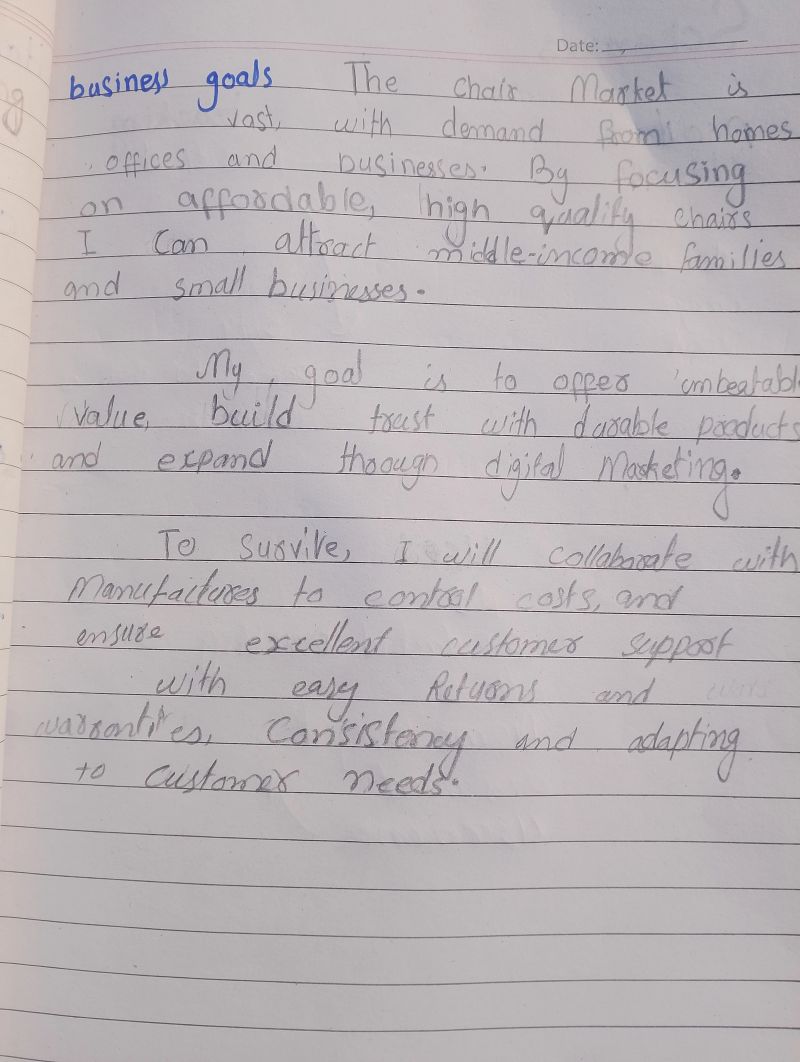 Date:
business goals The chair Market is
vast, with demand from homes
offices and businesses. By focusing
on affordable, high quality chairs
I can attract middle-income families
and small businesses.
My goal is to offer unbeatabl
value, build trust with durable products
and expand through digital Marketing.
To survive, I will collaborate with
Manufactures to control costs, and
ensure excellent customer support
with easy Returns and
warrantites, Consistency and adapting
to customer needs.